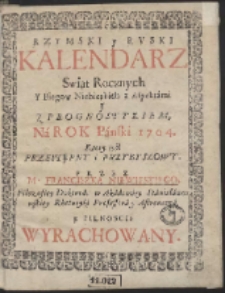 RZYMSKI y RUSKI
KALENDARZ
Swiąt Rocznych
Y Biegow Niebieskich z Aspektámi
Y
Z PROGNOSTYKIEM,
Ná ROK Páński 1704.
Ktory jest
PRZESTĘPNY y PRZYBYSZOWY.
PRZEZ
M. FRANCISZKA
Filozofiey Doktorá, w Akádemiey
Rhetoryki Professorá,
Z PILNOSCIĄ
WYRACHOWANY.